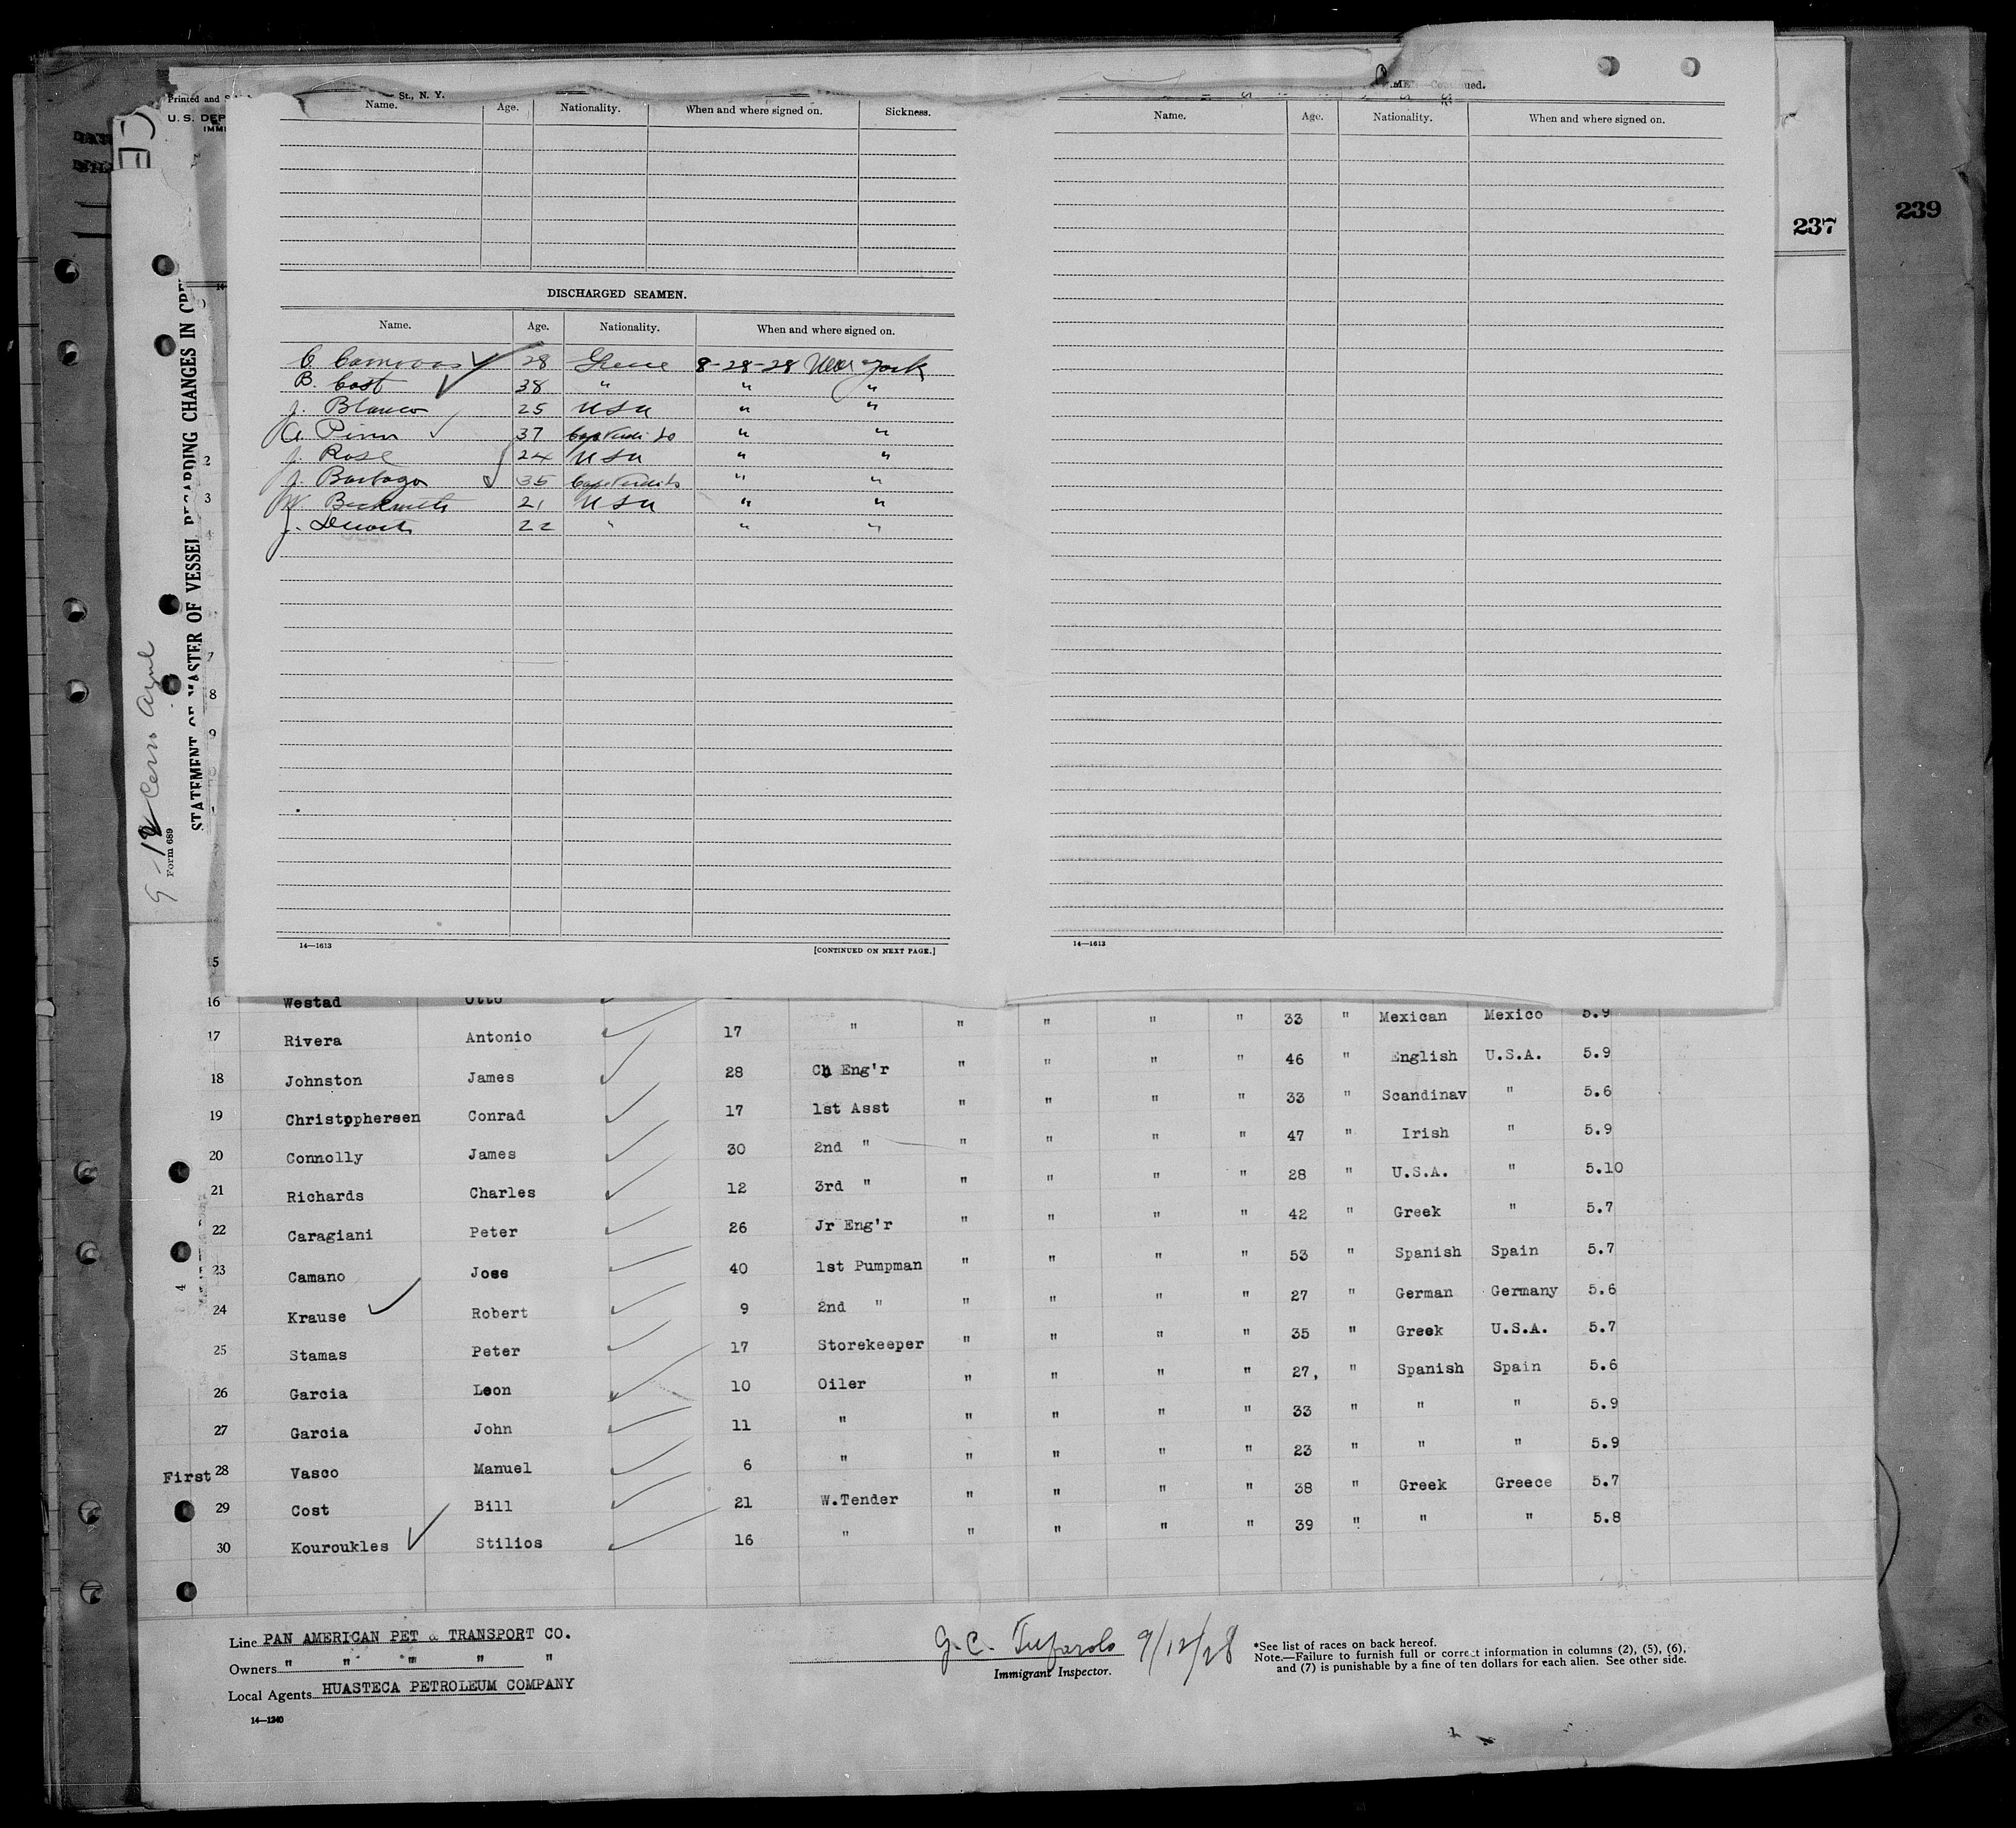 237
239
Printed and
St., N. Y.
U. S. DEP
IMMI
Name. Age. Nationality. When and where signed on. Sickness.
MEN—Continued.
Name. Age. Nationality. When and where signed on.
DISCHARGED SEAMEN.
Name. Age. Nationality. When and where signed on.
28 Greece 8-28-28 New York
B. Cost 38 " " "
J. Blanco 25 USA " "
37 " "
J. Rose 24 USA " "
J. 35 " "
W. 21 USA " "
J. 22 " " "
14—1613 [CONTINUED ON NEXT PAGE.]
14—1613
STATEMENT OF MASTER OF VESSEL REGARDING CHANGES IN CRE
Form 689
Cerro Azul
2
3
4
7
8
9
15
16 Westad Otto
17 Rivera Antonio 17 " " " " " 33 " Mexican Mexico 5.9
18 Johnston James 28 Ch Eng'r " " " " 46 " English U.S.A. 5.9
19 Christophersen Conrad 17 1st Asst " " " " 33 " Scandinav " 5.6
20 Connolly James 30 2nd " " " " " 47 " Irish " 5.9
21 Richards Charles 12 3rd " " " " " 28 " U.S.A. " 5.10
22 Caragiani Peter 26 Jr Eng'r " " " " 42 " Greek " 5.7
23 Camano Jose 40 1st Pumpman " " " " 53 " Spanish Spain 5.7
24 Krause Robert 9 2nd " " " " " 27 " German Germany 5.6
25 Stamas Peter 17 Storekeeper " " " " 35 " Greek U.S.A. 5.7
26 Garcia Leon 10 Oiler " " " " 27, " Spanish Spain 5.6
27 Garcia John 11 " " " " " 33 " " " 5.9
First 28 Vasco Manuel 6 " " " " " 23 " " " 5.9
29 Cost Bill 21 W.Tender " " " " 38 " Greek Greece 5.7
30 Kouroukles Stilios 16 " " " " " 39 " " " 5.8
Line PAN AMERICAN PET & TRANSPORT CO.
Owners " " " " "
Local Agents HUASTECA PETROLEUM COMPANY
14—1240
G. C. Tufarolo 9/12/28
Immigrant Inspector.
*See list of races on back hereof.
Note.—Failure to furnish full or correct information in columns (2), (5), (6),
and (7) is punishable by a fine of ten dollars for each alien. See other side.